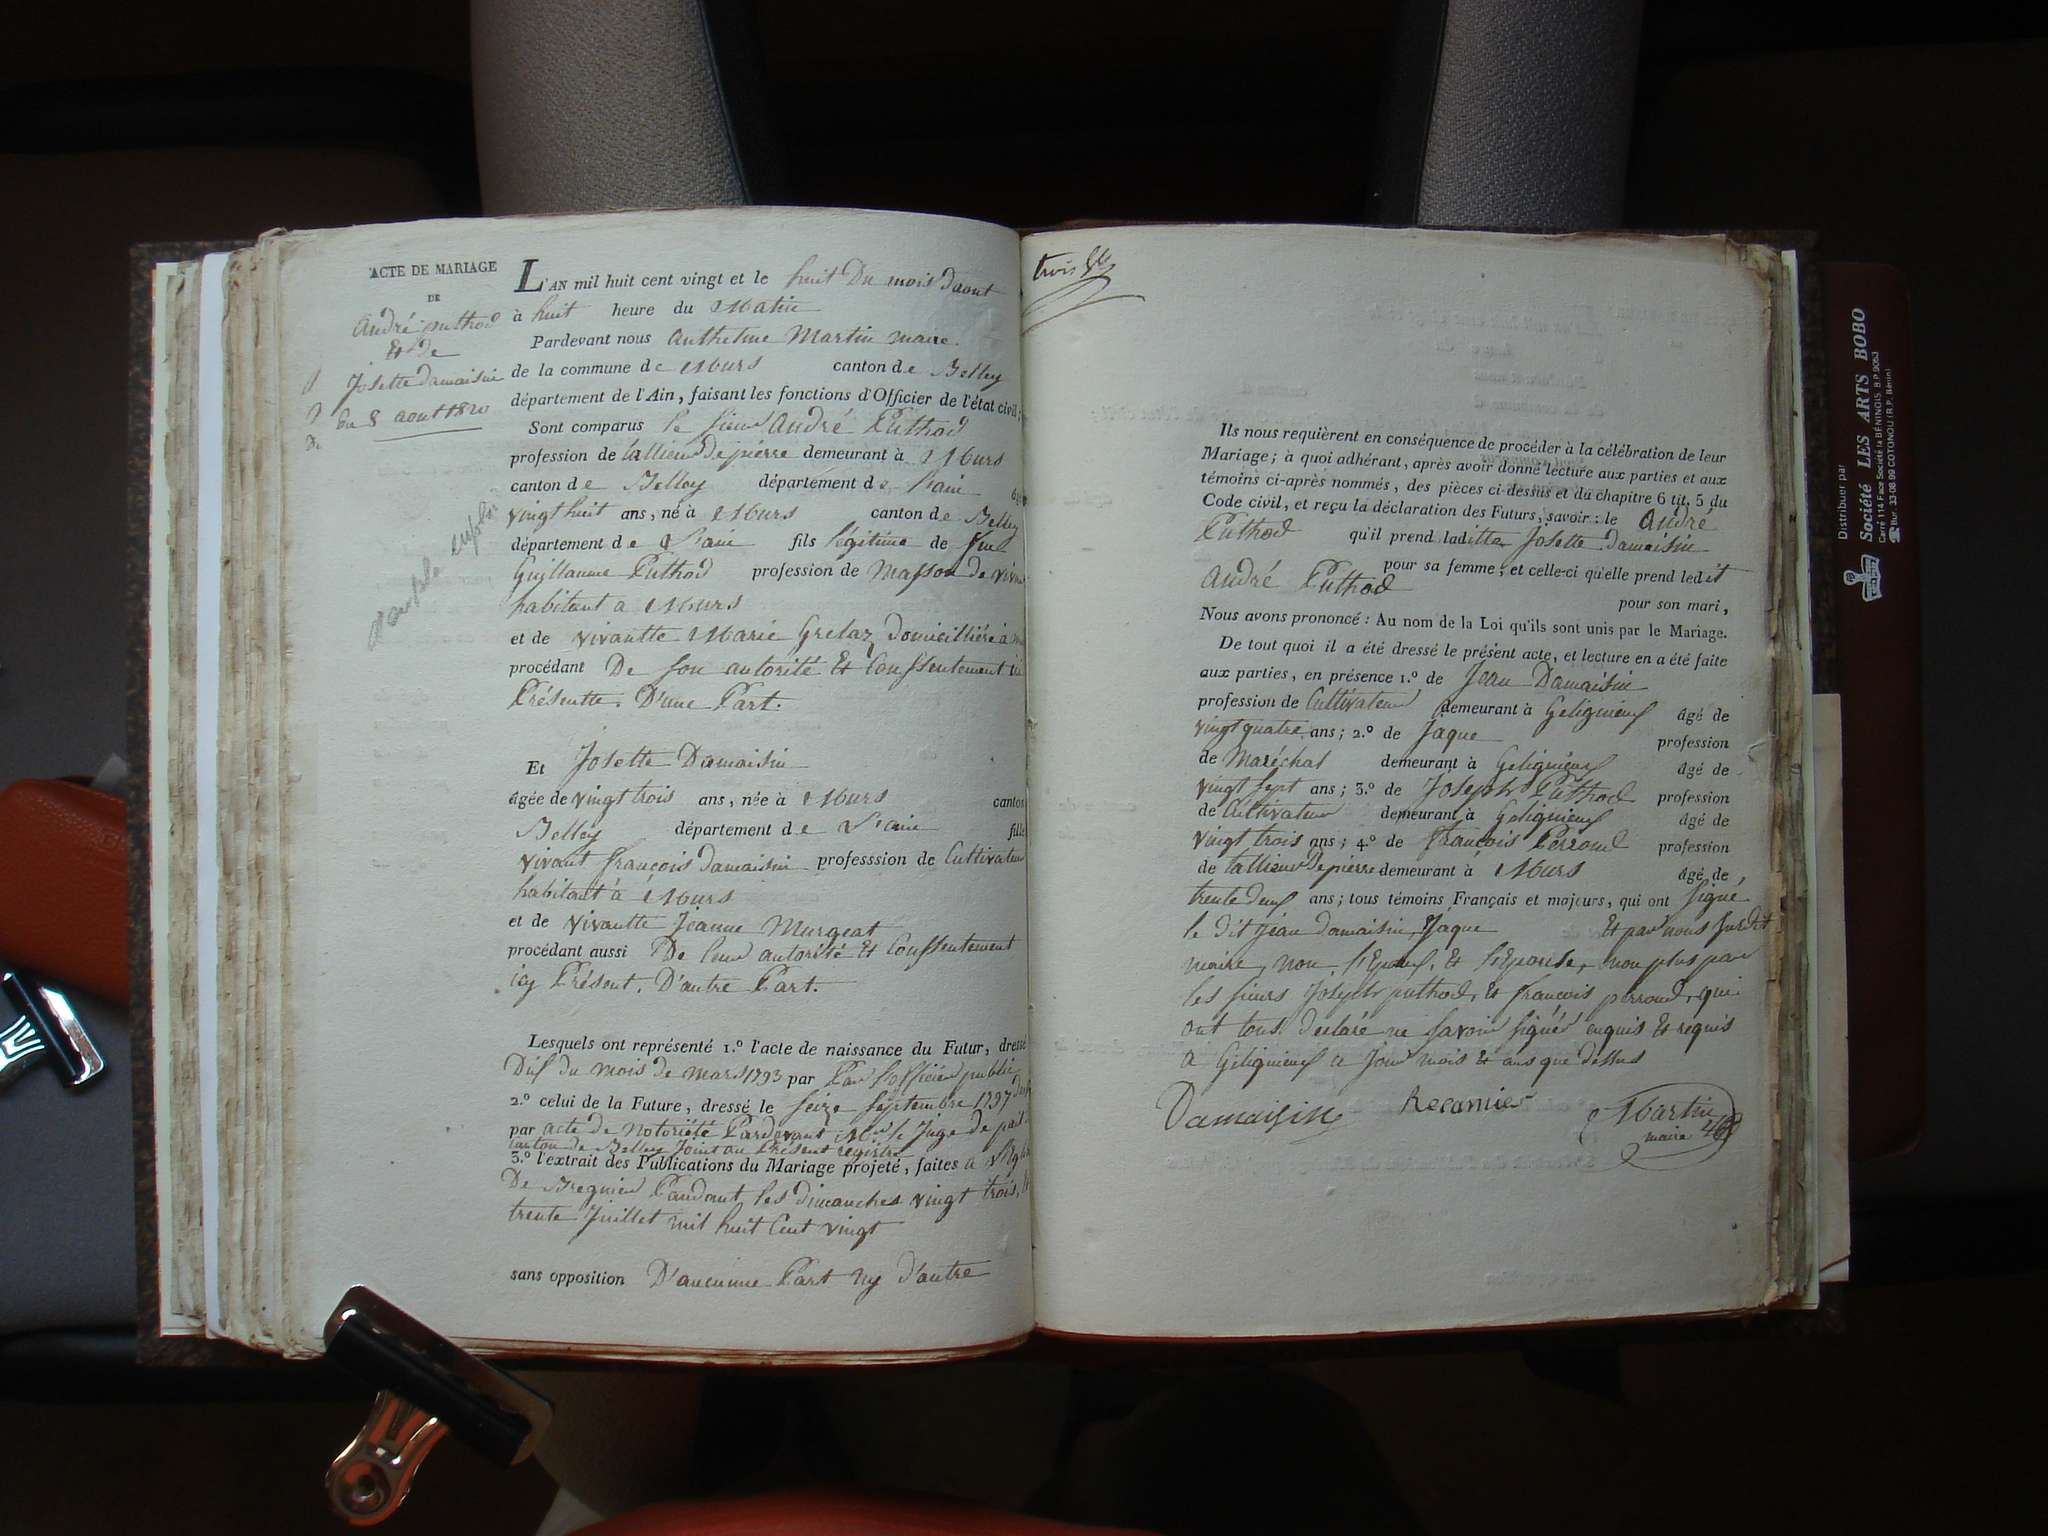 ACTE DE MARIAGE
DE
André puthod
Et de
Josette damaisin
du 8 aout 1820
L'AN mil huit cent vingt et le huit Du mois d'aout
à huit heure du Matin
Pardevant nous anthelme Martin maire
de la commune de Murs canton de Belley
département de l'Ain, faisant les fonctions d'Officier de l'état civil;
Sont comparus le sieur André Puthod
profession de tallieur De pierre demeurant à Murs
canton de Belley département de L'ain âgé
vingt huit ans, né à Murs canton de Belley
département de L'ain fils légitime de feu
Guillaume Puthod profession de Masson de vivant
habitant a Murs
et de vivantte Marie Grelaz Domicilliére à
procédant De son autorité Et Conssentement
Présentte. D'une Part.
Et Josette Damaisin
âgée de vingt trois ans, née à Murs canton
Belley département de L'ain fille
vivant françois damaisin profession de Cultivateur
habitant à Murs
et de vivantte Jeanne Murgeat
procédant aussi De leur autorité Et Conssentement
icy Présent. D'autre Part.
Lesquels ont représenté 1.º l'acte de naissance du Futur, dressé
Dix du mois de mars 1793 par Par l'officier public
2.º celui de la Future, dressé le seize septembre 1797
par acte de Notoriété Pardevant Mr le Juge de paix
canton de Belley Joint au Présent registre
3.º l'extrait des Publications du Mariage projeté, faites a
De Bregnier Pandant les dimanches vingt trois,
trente Juillet mil huit Cent vingt
sans opposition D'aucunne Part ny d'autre
trois
Ils nous requièrent en conséquence de procéder à la célébration de leur
Mariage; à quoi adhérant, après avoir donné lecture aux parties et aux
témoins ci-après nommés, des pièces ci-dessus et du chapitre 6 tit. 5 du
Code civil, et reçu la déclaration des Futurs, savoir : le André
Puthod qu'il prend laditte Josette damaisin
pour sa femme; et celle-ci qu'elle prend ledit
André Puthod
pour son mari,
Nous avons prononcé : Au nom de la Loi qu'ils sont unis par le Mariage.
De tout quoi il a été dressé le présent acte, et lecture en a été faite
aux parties, en présence 1.º de Jean Damaisin
profession de Cultivateur demeurant à Gelignieux âgé de
vingt quatre ans; 2.º de Jaque profession
de Maréchal demeurant à Gelignieux âgé de
vingt sept ans; 3.º de Joseph Puthod profession
de Cultivateur demeurant à Gelignieux âgé de
vingt trois ans; 4.º de françois Perroud profession
de tallieur De pierre demeurant à Murs âgé de
trente deux ans; tous témoins Français et majeurs, qui ont signé
le dit jean damaisin, Jaque Et par nous surdit
maire, non l'Epoux, Et l'Epouse, non plus par
les sieurs Joseph puthod, Et françois perroud, qui
ont tous déclaré ne savoir signér enquis Et requis
a Gelignieux a Jour mois Et ans que dessus
Damaisin
Recamier
Martin
maire
Distribuer par
Société LES ARTS BOBO
Carré 114 Face Société la BÉNINOIS B.P. 9053
Bur. 33-08-99 COTONOU (R.P. Bénin)